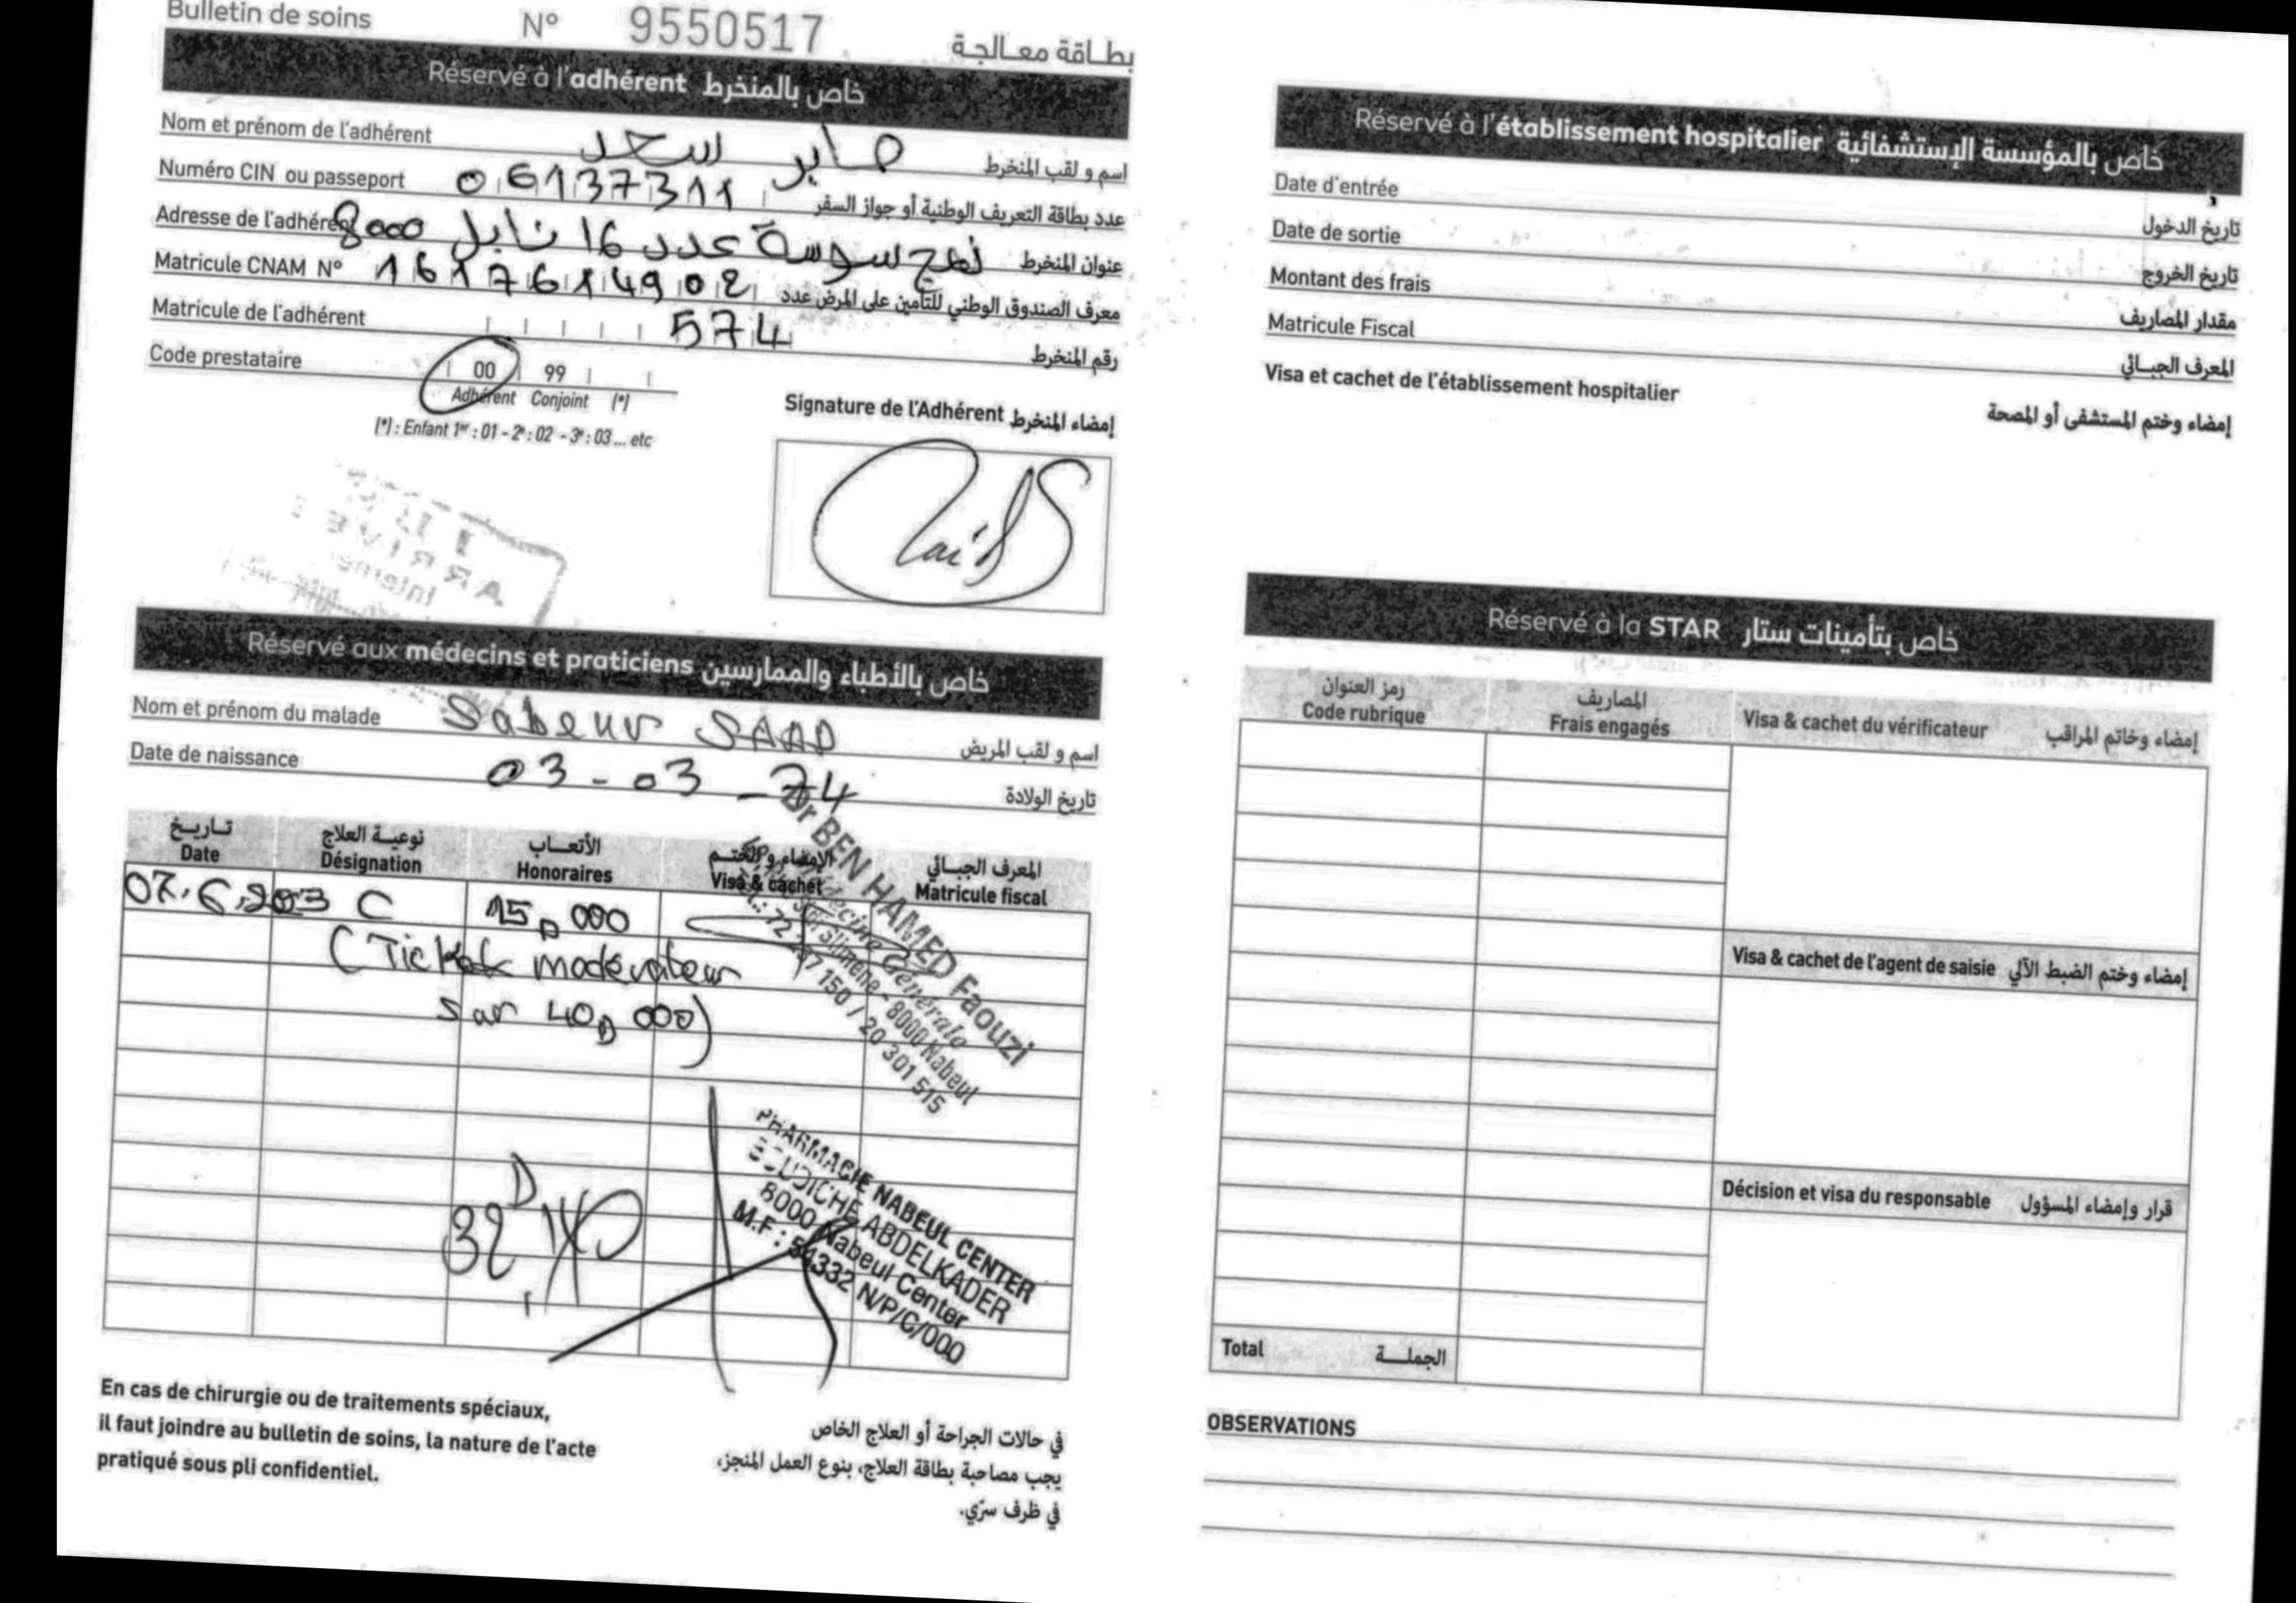 Bulletin de soins N° 9550517 بطاقة معالجة
Réservé à l'adhérent خاص بالمنخرط
Nom et prénom de l'adhérent صابر سعد اسم و لقب المنخرط
Numéro CIN ou passeport 06137311 عدد بطاقة التعريف الوطنية أو جواز السفر
Adresse de l'adhérent نهج سوسة عدد 16 نابل 8000 عنوان المنخرط
Matricule CNAM N° 1617614902 معرف الصندوق الوطني للتأمين على المرض عدد
Matricule de l'adhérent 574 رقم المنخرط
Code prestataire 00 99
Adhérent Conjoint (*)
(*) : Enfant 1er : 01 - 2e : 02 - 3e : 03 ... etc
Signature de l'Adhérent إمضاء المنخرط
ARRIVE
Interne
Réservé aux médecins et praticiens خاص بالأطباء والممارسين
Nom et prénom du malade Sabeur SAAD اسم و لقب المريض
Date de naissance 03-03-74 تاريخ الولادة
تاريخ نوعية العلاج الأتعاب الإمضاء و الختم المعرف الجبائي
Date Désignation Honoraires Visa & cachet Matricule fiscal
07.6.2023 C 15D000
(Ticket modérateur
sur 40D000)
Dr BEN HAMED Faouzi
Médecine Générale
Slimene - 8000 Nabeul
150 / 20 301 515
PHARMACIE NABEUL CENTER
ABDELKADER
8000 Nabeul Center
M.F : 54332 N/P/C/000
En cas de chirurgie ou de traitements spéciaux,
il faut joindre au bulletin de soins, la nature de l'acte
pratiqué sous pli confidentiel.
في حالات الجراحة أو العلاج الخاص
يجب مصاحبة بطاقة العلاج، بنوع العمل المنجز،
في ظرف سرّي.
Réservé à l'établissement hospitalier خاص بالمؤسسة الإستشفائية
Date d'entrée تاريخ الدخول
Date de sortie تاريخ الخروج
Montant des frais مقدار المصاريف
Matricule Fiscal المعرف الجبائي
Visa et cachet de l'établissement hospitalier إمضاء وختم المستشفى أو المصحة
Réservé à la STAR خاص بتأمينات ستار
رمز العنوان المصاريف
Code rubrique Frais engagés Visa & cachet du vérificateur إمضاء وخاتم المراقب
Visa & cachet de l'agent de saisie إمضاء وختم الضبط الآلي
Décision et visa du responsable قرار وإمضاء المسؤول
Total الجملة
OBSERVATIONS